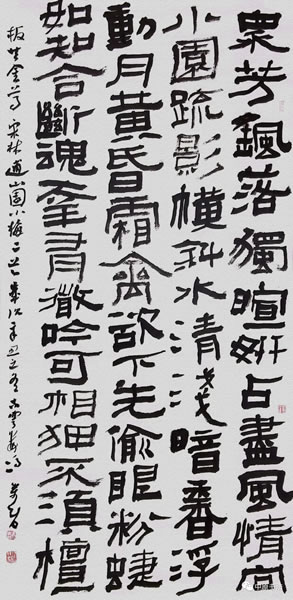 眾芳颻落獨暄妍占盡風情向
小園疏影橫斜水清淺暗香浮
動月黃昏霜禽欲下先偷眼粉蝶
如知合斷魂幸有微吟可相狎不須檀
板共金尊 宋林逋山園小梅 辛丑之